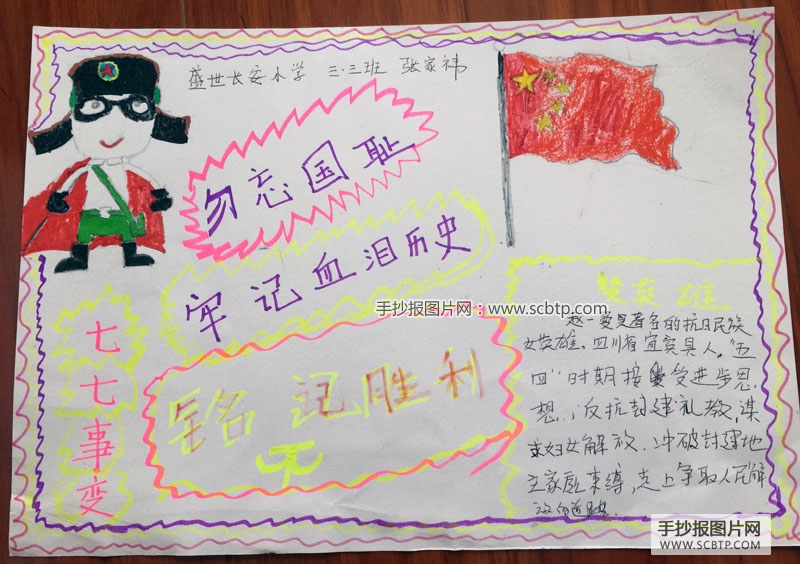 盛世长安小学 三·三班 张家祎
勿忘国耻
牢记血泪历史
手抄报图片网：www.scbtp.com
铭记胜利
七七事变
赵一曼是著名的抗日民族
女英雄。四川省宜宾县人。"五
四"时期接受进步思
想，反抗封建礼教，谋
求妇女解放。冲破封建地
主家庭束缚，走上争取人民解
手抄报图片网
WWW.SCBTP.COM